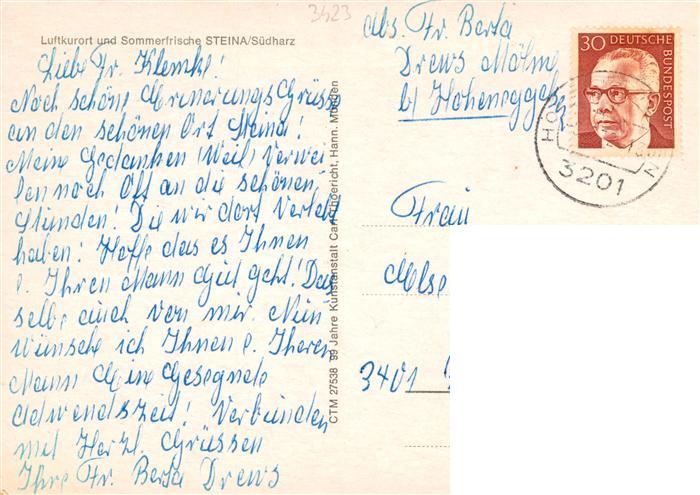 3423
Luftkurort und Sommerfrische STEINA/Südharz
Liebe Fr. Klemke!
Noch schöne Erinerungs Grüsse
an den schönen Ort Steina!
Meine Gedanken (Weil) Verwei
len noch Oft an die schönen
Stunden! Die wir dort Verlebt
haben! Hoffe das es Ihnen
u. Ihren Mann Gut geht! Das
selbe auch von mir. Nun
wünsche ich Ihnen u. Iheren
Mann Eine Gesegnete
Adwendszeit! Verbunden
mit Herzl. Grüssen
Ihre Fr. Berta Drews
CTM 27538 99 Jahre Kunstanstalt Carl Thoericht, Hann. Münden
Abs. Fr. Berta
Drews Mölme
b/ Hoheneggels
30 DEUTSCHE BUNDESPOST
3201
Frau
Else
3401